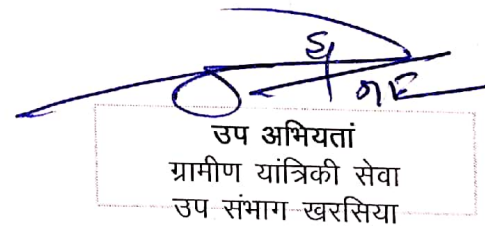 उप अभियतां
ग्रामीण यांत्रिकी सेवा
उप संभाग खरसिया